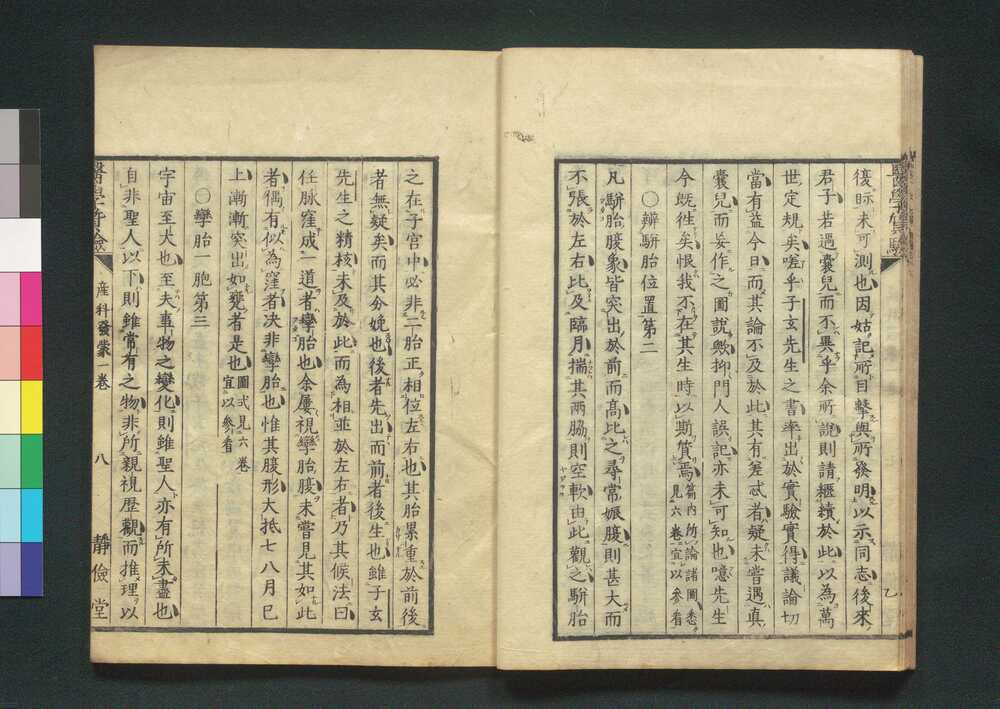 復眎未可測也因姑記所目擊與所發明以示同志後來
君子若遇囊兒而不異乎余所說則請繼續於此以為萬
世定規矣嗟乎子玄先生之書率出於實驗實得議論切
當有益今日而其論不及於此其有差忒者疑未嘗遇真
囊兒而妄作之圖說歟抑門人誤記亦未可知也噫先生
今既徃矣恨我不在其生時以斯質焉篇内所論諸圖悉見六卷宜以參看
〇辨駢胎位置第二
凡駢胎腹象皆突出於前而高比之尋常娠腹則甚大而
不張於左右比及臨月揣其兩脇則空軟由此觀之駢胎
之在子宮中必非二胎正相位左右也其胎累重於前後
者無疑矣而其分娩也後者先出而前者後生也雖子玄
先生之精核未及於此而為相並於左右者乃其候法曰
任脉窪成一道者孿胎也余屢視孿胎腹未嘗見其如此
者偶有似為窪者决非孿胎也惟其腹形大抵七八月已
上漸漸突出如甕者是也圖式見六卷宜以參看
〇孿胎一胞第三
宇宙至大也至夫事物之變化則雖聖人亦有所未盡也
自非聖人以下則雖常有之物非所親視歷觀而推理以
産科發蒙一卷 八 靜儉堂